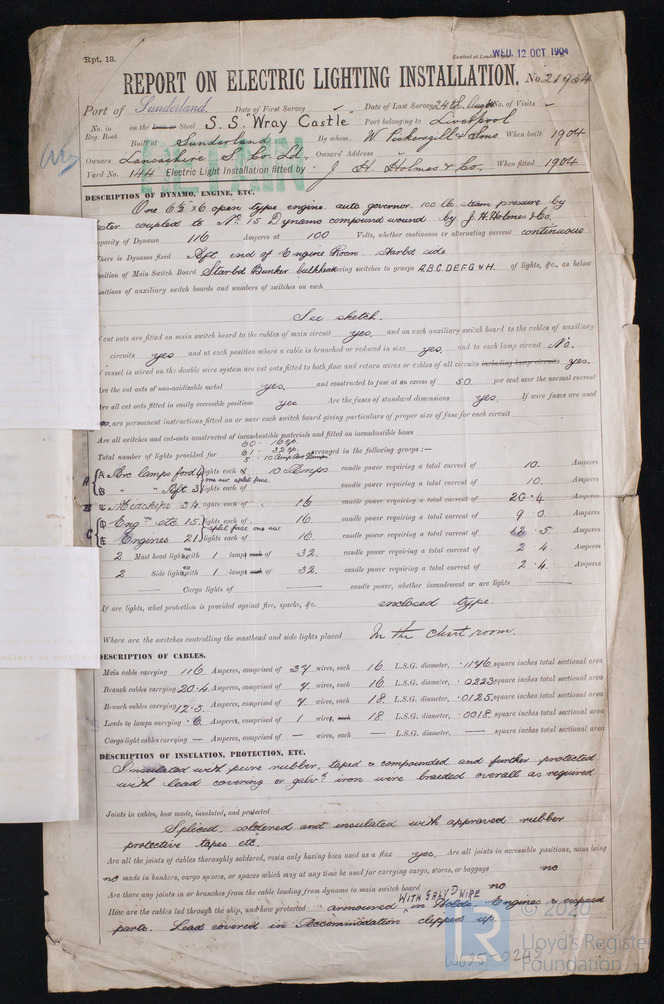 Rpt. 13.
Received at London WED. 12 OCT 1904
REPORT ON ELECTRIC LIGHTING INSTALLATION. No 21954
Port of Sunderland. Date of First Survey ✓ Date of Last Survey 24th Aug No. of Visits ✓
No. in Reg. Book on the Iron or Steel S.S. "Wray Castle" Port belonging to Liverpool
Built at Sunderland By whom. W Pickersgill & Sons When built 1904
Owners Lancashire S. Co. Ld. Owners' Address
Yard No. 144 Electric Light Installation fitted by J H Holmes & Co. When fitted 1904
DESCRIPTION OF DYNAMO, ENGINE, ETC.
One 6½ x 6 open type engine auto governor. 100 lb steam pressure by
coupled to No 15 Dynamo compound wound by J.H. Holmes & Co.
apacity of Dynamo 116 Amperes at 100 Volts, whether continuous or alternating current continuous
here is Dynamo fixed Aft end of Engine Room. Starbd side
osition of Main Switch Board Starbd Bunker bulkhead having switches to groups A.B.C.D.E.F.G & H. of lights, &c., as below
ositions of auxiliary switch boards and numbers of switches on each
See sketch.
f cut outs are fitted on main switch board to the cables of main circuit yes. and on each auxiliary switch board to the cables of auxiliary
circuits yes and at each position where a cable is branched or reduced in size yes and to each lamp circuit No.
f vessel is wired on the double wire system are cut outs fitted to both flow and return wires or cables of all circuits including lamp circuits yes.
Are the cut outs of non-oxidizable metal yes. and constructed to fuse at an excess of 50 per cent over the normal current
Are all cut outs fitted in easily accessible positions yes Are the fuses of standard dimensions yes. If wire fuses are used
are permanent instructions fitted on or near each switch board giving particulars of proper size of fuse for each circuit
Are all switches and cut-outs constructed of incombustible materials and fitted on incombustible bases
60 - 16 cp.
Total number of lights provided for 61 - 32 cp. arranged in the following groups :—
5 - 10 amp Arc Lamps
A Arc lamps ford 4 lights each of 10 Amps candle power requiring a total current of 10. Amperes
B " - Aft 3 lights each of candle power requiring a total current of 10. Amperes
C Midships 34 lights each of 16 candle power requiring a total current of 20.4 Amperes
D Engrs etc 15 lights each of 16. candle power requiring a total current of 9.0 Amperes
E Engines 21 lights each of 16. candle power requiring a total current of 12.5 Amperes
2 Mast head lights with 1 lamps each of 32. candle power requiring a total current of 2.4. Amperes
2 Side lights with 1 lamps each of 32. candle power requiring a total current of 2.4. Amperes
— Cargo lights of — candle power, whether incandescent or arc lights —
If arc lights, what protection is provided against fire, sparks, &c. enclosed type
Where are the switches controlling the masthead and side lights placed In the chart room.
DESCRIPTION OF CABLES.
Main cable carrying 116 Amperes, comprised of 37 wires, each 16 L.S.G. diameter, .1146 square inches total sectional area
Branch cables carrying 20.4 Amperes, comprised of 7 wires, each 16 L.S.G. diameter, .0223 square inches total sectional area
Branch cables carrying 12.5 Amperes, comprised of 7 wires, each 18 L.S.G. diameter, .0125 square inches total sectional area
Leads to lamps carrying .6 Amperes, comprised of 1 wires, each 18 L.S.G. diameter, .0018 square inches total sectional area
Cargo light cables carrying — Amperes, comprised of — wires, each — L.S.G. diameter, — square inches total sectional area
DESCRIPTION OF INSULATION, PROTECTION, ETC.
Insulated with pure rubber, taped & compounded and further protected
with lead covering or galvd iron wire braided overall as required
Joints in cables, how made, insulated, and protected
Spliced, soldered and insulated with approved rubber
protective tapes etc.
Are all the joints of cables thoroughly soldered, resin only having been used as a flux yes. Are all joints in accessible positions, none being
made in bunkers, cargo spaces, or spaces which may at any time be used for carrying cargo, stores, or baggage no
Are there any joints in or branches from the cable leading from dynamo to main switch board no
WITH GALVD WIRE
How are the cables led through the ship, and how protected armoured in Holds. Engines & exposed
parts. Lead covered in Accommodation clipped up.
© 2020
LR Lloyd's Register Foundation
W615-0243